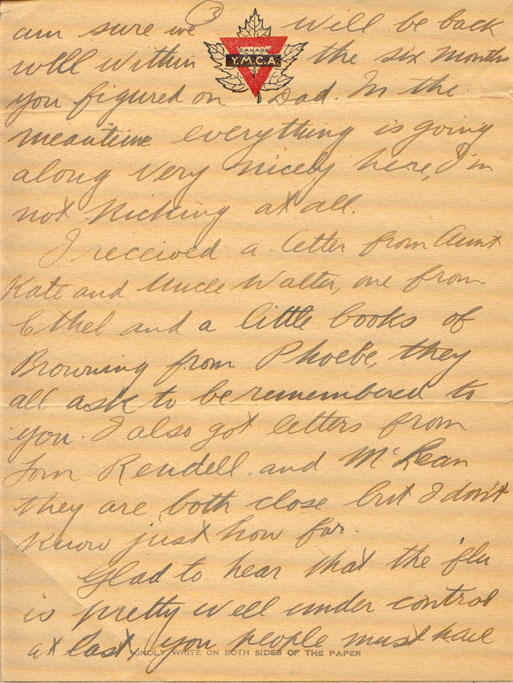 3
CANADA
Y.M.C.A.
am sure we will be back
well within the six months
you figured on Dad. In the
meantime everything is going
along very nicely here, I'm
not kicking at all.
I received a letter from Aunt
Kate and Uncle Walter, one from
Ethel and a little books of
Browning from Phoebe, they
all ask to be remembered to
you. I also got letters from
Tom Rendell and McLean
they are both close but I don't
know just how far.
Glad to hear that the 'flu
is pretty well under control
at last, you people must have
KINDLY WRITE ON BOTH SIDES OF THE PAPER